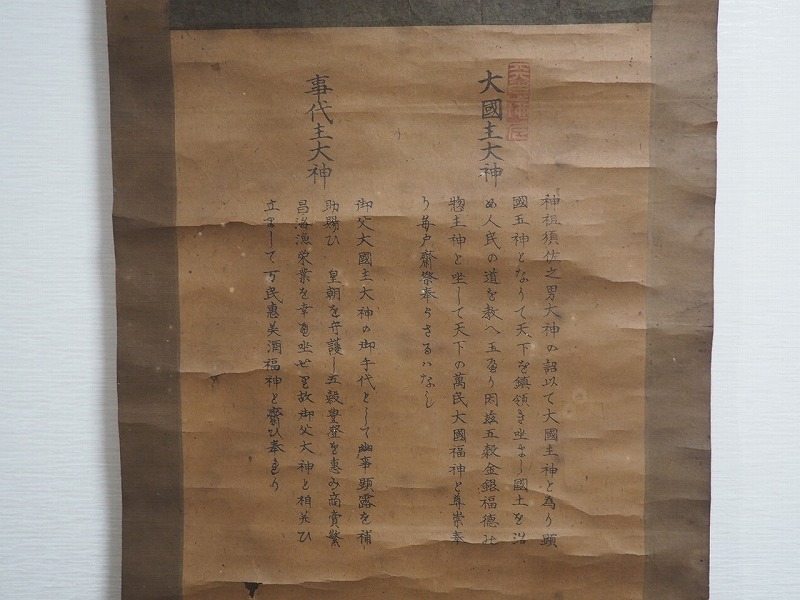 大國主大神
神祖須佐之男大神の詔以て大國主神と為り顕
國玉神となりて天下を鎮領き坐まし國土を治
め人民の道を教へ玉ひ因茲五穀金銀福徳の
惣主神と坐して天下の萬民大國福神と尊崇奉
り毎戸齋祭奉らさるハなし
事代主大神
御父大國主大神の御手代として幽事顕露を補
助賜ひ 皇朝を守護し五穀豊登を恵み商賣繁
昌海漁栄業を幸ひ坐せり故御父大神と相共ひ
立まして万民恵美酒福神と齋ひ奉れり